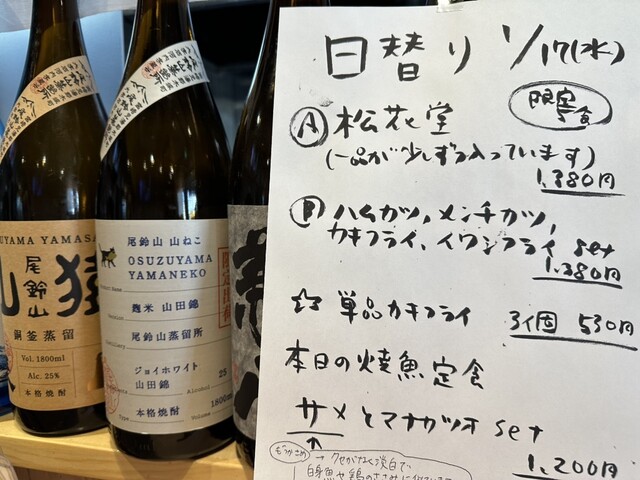 日替り 1/17(水)
限定食
Ⓐ 松花堂
(一品が少しずつ入っています)
1,380円
Ⓑ ハムカツ、メンチカツ、
カキフライ、イワシフライ set
1,380円
☆ 単品カキフライ 3個 530円
本日の焼魚定食
サメとマナガツオ set
1,200円
もうかさめ
→ クセがなく淡白で
白身魚や鶏のささみに
OSUZUYAMA YAMASA
尾鈴山
猿
銅釜蒸留
Vol. 1800ml
Alc. 25%
本格焼酎
尾鈴山 山ねこ
OSUZUYAMA
YAMANEKO
麹米 山田錦
尾鈴山蒸留所
ジョイホワイト
山田錦
Alcohol 25
本格焼酎
Type
Volume 1800ml